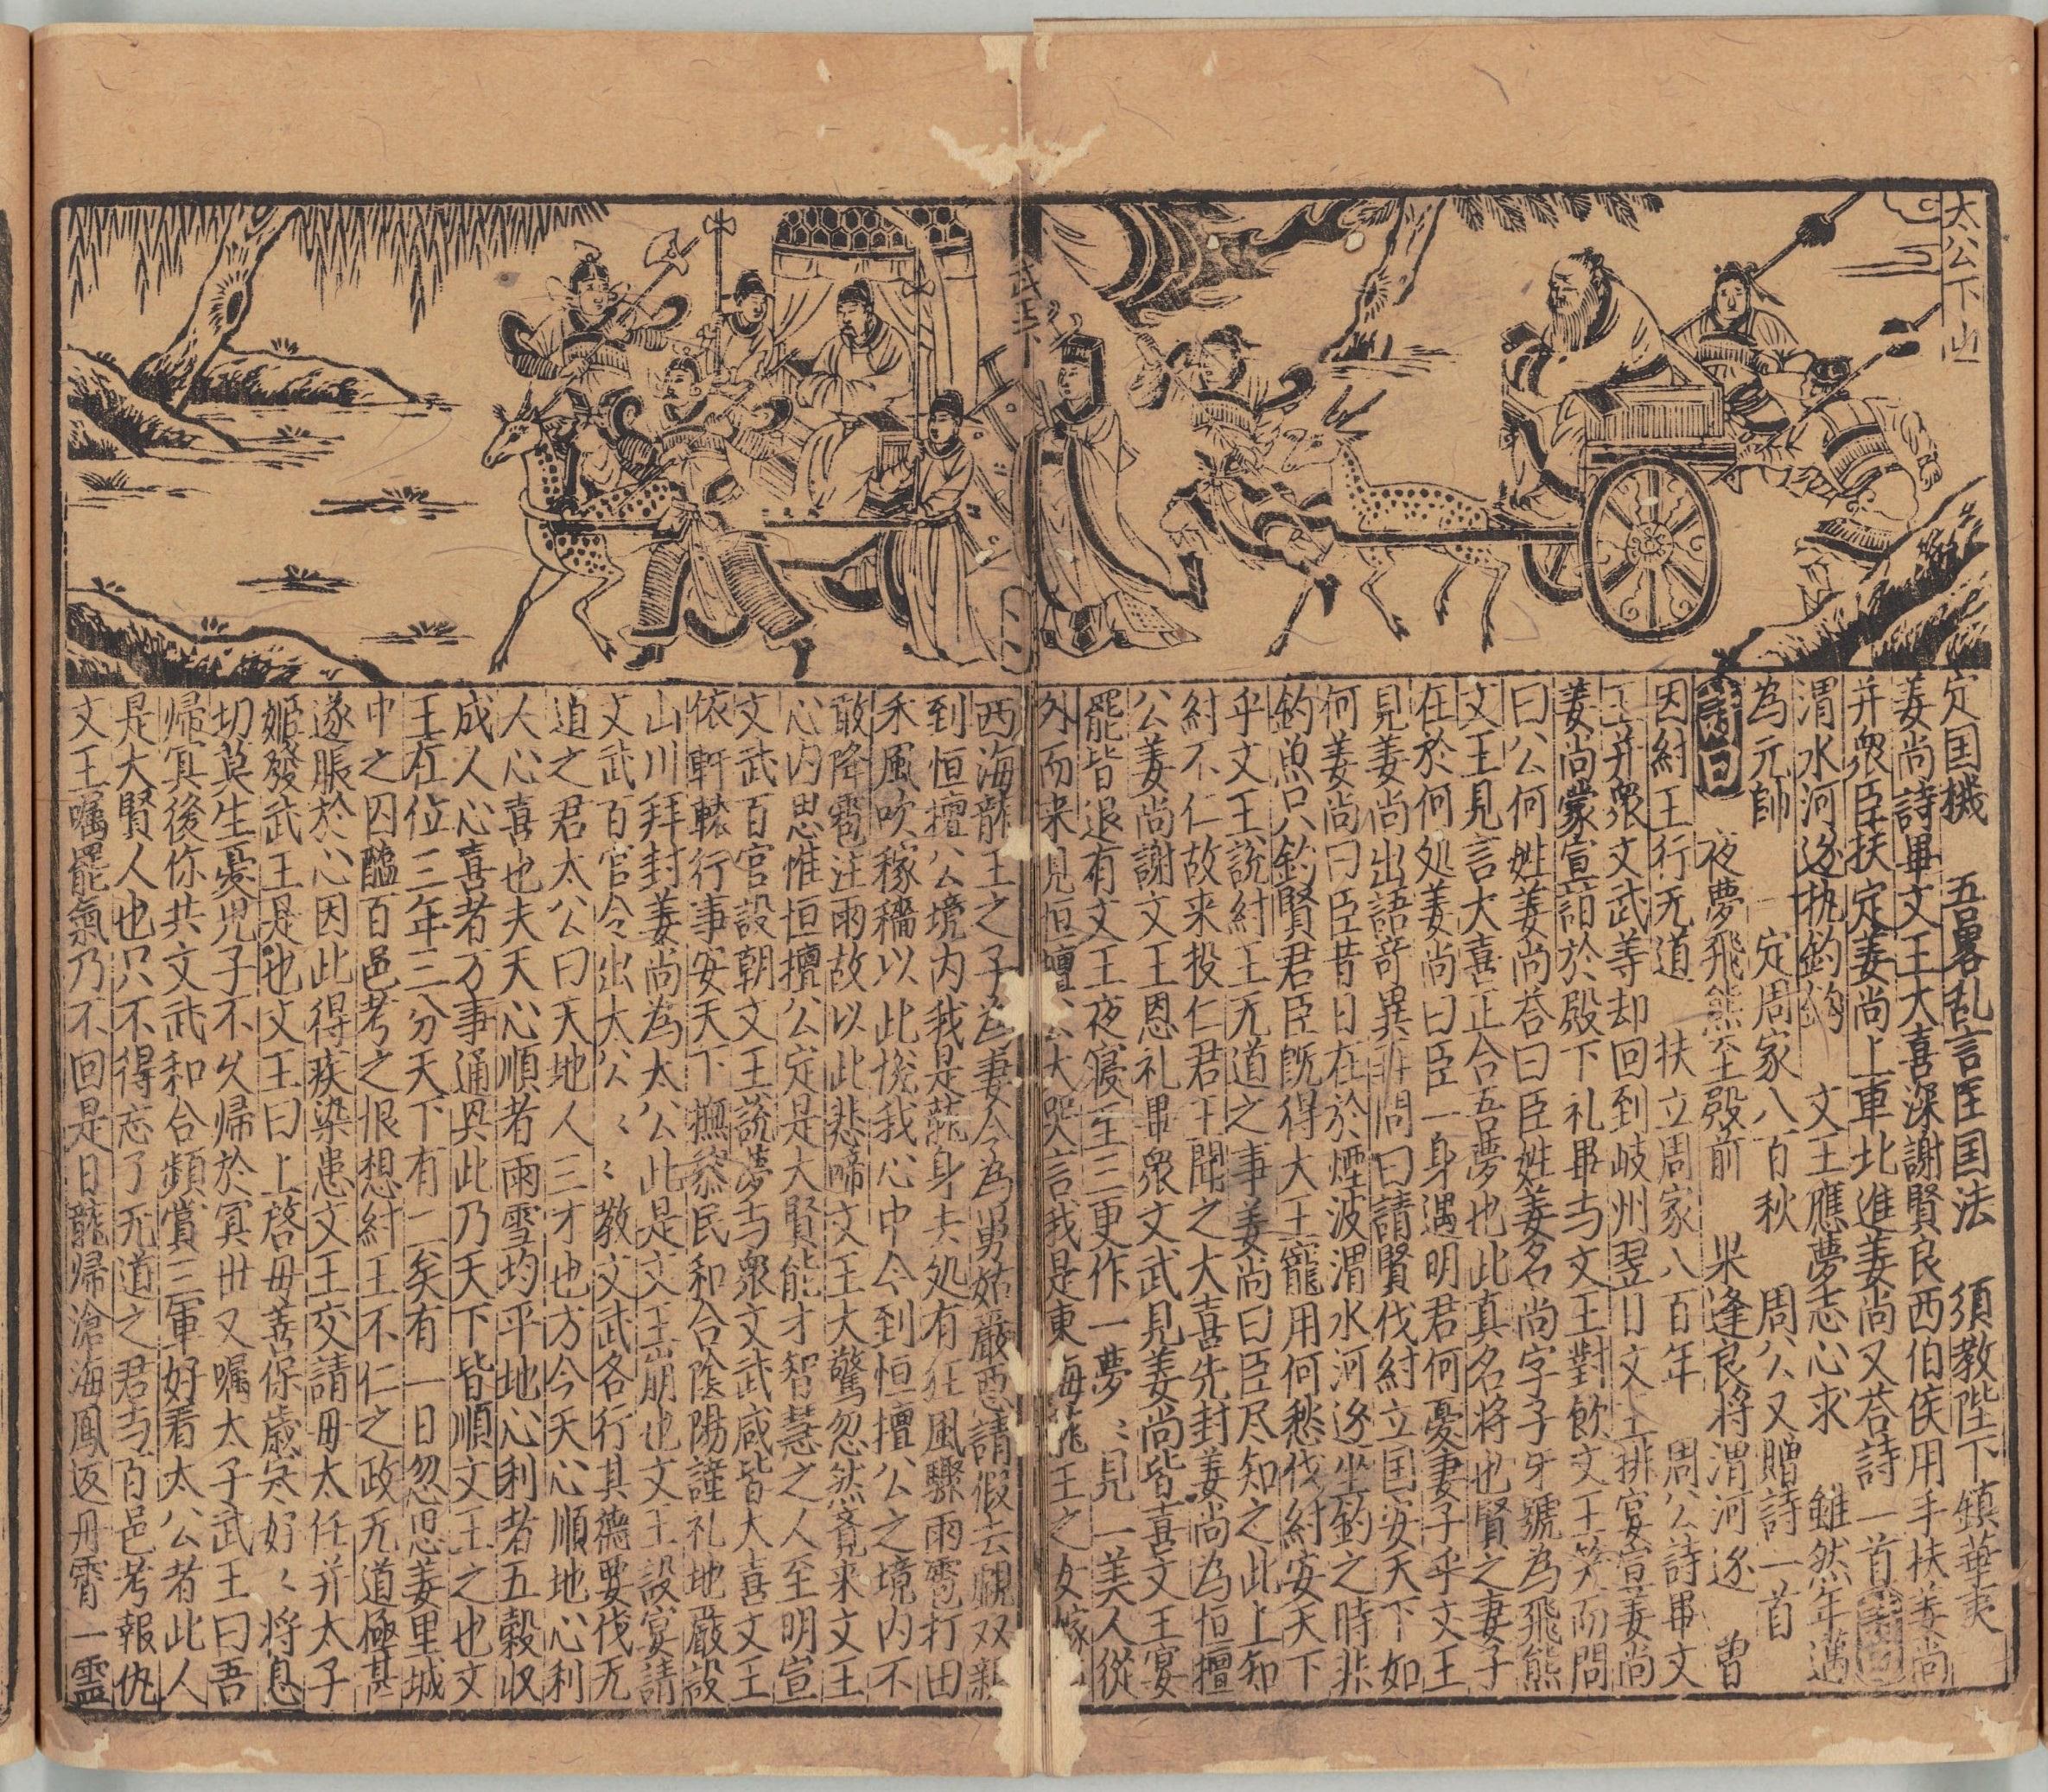 太公下山
定国機　五畧乱言匡国法　須教陛下鎮華夷
姜尚詩畢文王大喜深謝賢良西伯侯用手扶姜尚
并衆臣扶定姜尚上車北進姜尚又荅詩一首
渭水河邊執釣鈎　文王應夢志心求　雖然年邁
為元帥　定周家八百秋　周公又贈詩一首
詩曰　夜夢飛熊至殿前　果逢良将渭河邊　曽
因紂王行无道　扶立周家八百年　周公詩畢文
王并衆文武等却回到岐州翌日文王排宴宣姜尚
姜尚蒙宣詔於殿下礼畢与文王對飲文王笑而問
曰公何姓姜尚荅曰臣姓姜名尚字子牙號為飛熊
文王見言大喜正合吾夢也此真名将也賢之妻子
在於何処姜尚曰臣一身遇明君何憂妻子乎文王
見姜尚出語竒異非問曰請賢伐紂立国安天下如
何姜尚曰臣昔日在於煙波渭水河邊坐釣之時非
釣魚只釣賢君臣旣得大王寵用何愁伐紂安天下
乎文王說紂王无道之事姜尚曰臣尽知之此上知
紂不仁故来投仁君王聞之大喜先封姜尚為恒檀
公姜尚謝文王恩礼畢衆文武見姜尚皆喜文王宴
罷皆退有文王夜寝至三更作一夢〻見一美人從
外而来見恒檀公大哭言我是東海龍王之女嫁
西海龍王之子為妻今為舅姑嚴惡請假去覷双親
到恒檀公境内我是龍身去処有狂風驟雨雹打田
禾風吹稼穡以此悗我心中今到恒檀公之境内不
敢降雹注雨故以此悲啼文王大驚忽然覺来文王
心内思惟恒檀公定是大賢能才智慧之人至明宣
文武百官設朝文王說夢与衆文武咸皆大喜文王
依軒轅行事安天下撫恭民和合隂陽謹礼地嚴設
山川拜封姜尚為太公此是文王崩也文王設宴請
文武百官令出太公〻〻教文武各行其德要伐无
道之君太公曰天地人三才也方今天心順地心利
人心喜也夫天心順者雨雪均平地心利者五穀収
成人心喜者万事通興此乃天下皆順文王之也文
王在位三年三分天下有二矣有一日忽思姜里城
中之囚醢百邑考之恨想紂王不仁之政无道極甚
遂脹於心因此得疾染患文王交請母太任并太子
姬發武王是也文王曰上啓母善保歲寒好〻将息
切莫生憂児子不久帰於冥世又嘱太子武王曰吾
帰冥後你共文武和合頻賞三軍好看太公者此人
是大賢人也只不得忘了无道之君与百邑考報仇
文王嘱罷氣乃不回是日龍帰滄海鳳返丹霄一靈